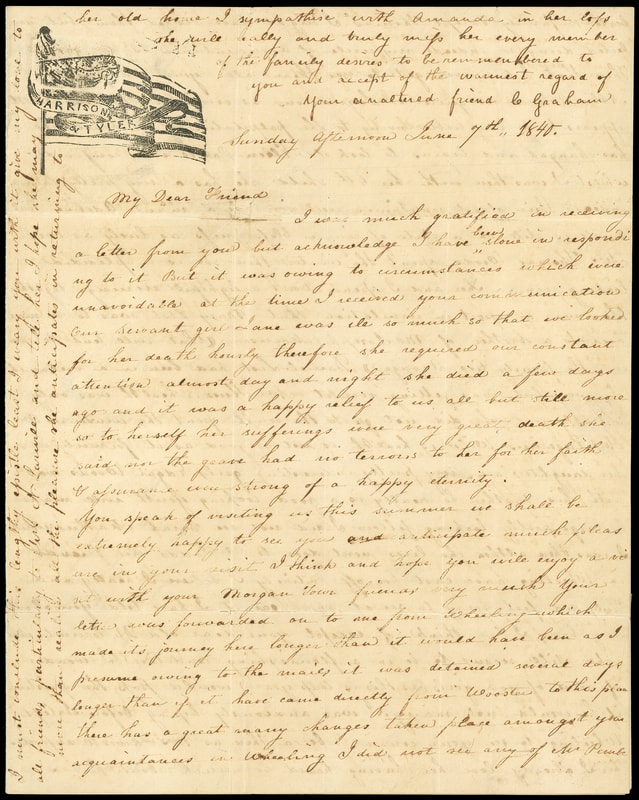 her old home I sympathise with Amanda in her loss
she will really and truly miss her every member
of the family desires to be remembered to
you and accept of the warmest regard of
Your unaltered friend C Graham
HARRISON
& TYLER
Sunday Afternoon June 7th,, 1840.
My Dear Friend
I was much gratified in receiving
a letter from you but acknowledge I have been slone in respondi
ng to it But it was owing to circumstances which were
unavoidable at the time I received your communication
Our servant girl Jane was ile so much so that we looked
for her death hourly therefore she required our constant
attention almost day and night she died a few days
ago and it was a happy relief to us all but still more
so to herself her sufferings were very great death she
said nor the grave had no terrors to her for her faith
& assurance was strong of a happy eternity.
You speak of visiting us this summer we shall be
extremely happy to see you and anticipate much pleas
ure in your visit I think and hope you will enjoy a vi
sit with your Morgan Town friends very much Your
letter was forwarded on to me from Wheeling which
made its journey here longer than it would have been as I
presume owing to the mails it was detained several days
longer than if it have came directly from Wooster to this place
there has a great many changes taken place amongst your
acquaintances in Wheeling I did not see any of Mr
I must conclude this lengthy epistle least I weary you with it give my love to
all friends particularly to Mrs and tell her I hope she may
more than realise all the pleasure she anticipates in returning to